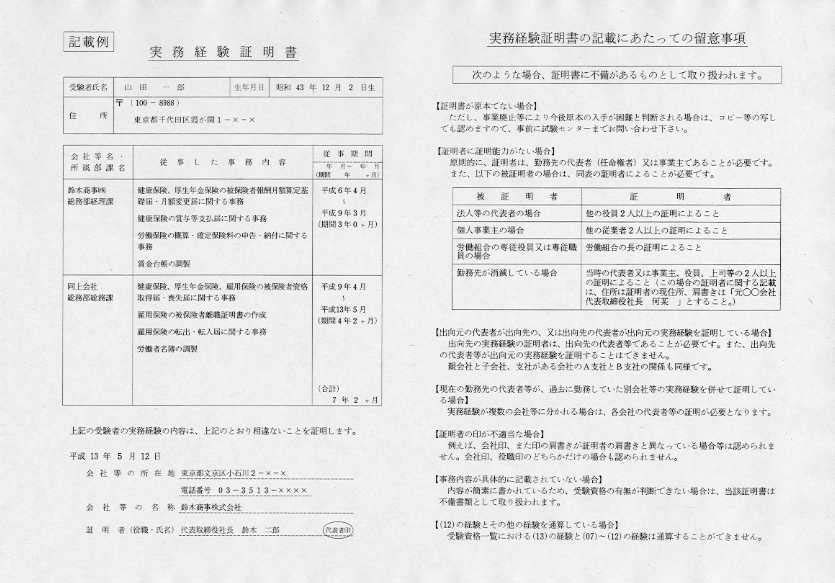 記載例
実務経験証明書
受験者氏名 山田 一郎 生年月日 昭和 43 年 12 月 2 日生
住 所 〒 (100-8988)
東京都千代田区霞が関1-×-×
会社等名・所属部課名 従事した事務内容 従事期間
年 月~ 年 月
(期間 年 ヵ月)
鈴木商事㈱
総務部経理課
健康保険、厚生年金保険の被保険者報酬月額算定基
礎届・月額変更届に関する事務
健康保険の賞与等支払届に関する事務
労働保険の概算・確定保険料の申告・納付に関する
事務
賃金台帳の調製
平成6年4月
~
平成9年3月
(期間3年0ヵ月)
同上会社
総務部総務課
健康保険、厚生年金保険、雇用保険の被保険者資格
取得届・喪失届に関する事務
雇用保険の被保険者離職証明書の作成
雇用保険の転出・転入届に関する事務
労働者名簿の調製
平成9年4月
~
平成13年5月
(期間4年2ヵ月)
(合計)
7 年 2 ヵ月
上記の受験者の実務経験の内容は、上記のとおり相違ないことを証明します。
平成 13 年 5 月 12 日
会社等の所在地 東京都文京区小石川2-×-×
電話番号 03-3513-××××
会社等の名称 鈴木商事株式会社
証明者(役職・氏名) 代表取締役社長 鈴木 二郎 代表者印
実務経験証明書の記載にあたっての留意事項
次のような場合、証明書に不備があるものとして取り扱われます。
【証明書が原本でない場合】
ただし、事業廃止等により今後原本の入手が困難と判断される場合は、コピー等の写し
でも認めますので、事前に試験センターまでお問い合わせ下さい。
【証明者に証明能力がない場合】
原則的に、証明者は、勤務先の代表者(任命権者)又は事業主であることが必要です。
また、以下の被証明者の場合は、同表の証明者によることが必要です。
被証明者 証明者
法人等の代表者の場合 他の役員2人以上の証明によること
個人事業主の場合 他の従業者2人以上の証明によること
労働組合の専従役員又は専従職
員の場合
労働組合の長の証明によること
勤務先が消滅している場合
当時の代表者又は事業主、役員、上司等の2人以上
の証明によること(この場合の証明者に関する記載
は、住所は証明者の現住所、肩書きは「元○○会社
代表取締役社長 何某 」とすること。)
【出向元の代表者が出向先の、又は出向先の代表者が出向元の実務経験を証明している場合】
出向先の実務経験の証明者は、出向先の代表者等であることが必要です。また、出向先
の代表者等が出向元の実務経験を証明することはできません。
親会社と子会社、支社がある会社のA支社とB支社の関係も同様です。
【現在の勤務先の代表者等が、過去に勤務していた別会社等の実務経験を併せて証明してい
る場合】
実務経験が複数の会社等に分かれる場合は、各会社の代表者等の証明が必要となります。
【証明者の印が不適当な場合】
例えば、会社印、また印の肩書きが証明者の肩書きと異なっている場合等は認められま
せん。会社印、役職印のどちらかだけの場合も認められません。
【事務内容が具体的に記載されていない場合】
内容が簡素に書かれているため、受験資格の有無が判断できない場合は、当該証明書は
不備書類として取り扱われます。
【(12)の経験とその他の経験を通算している場合】
受験資格一覧における(13)の経験と(07)~(12)の経験は通算することができません。